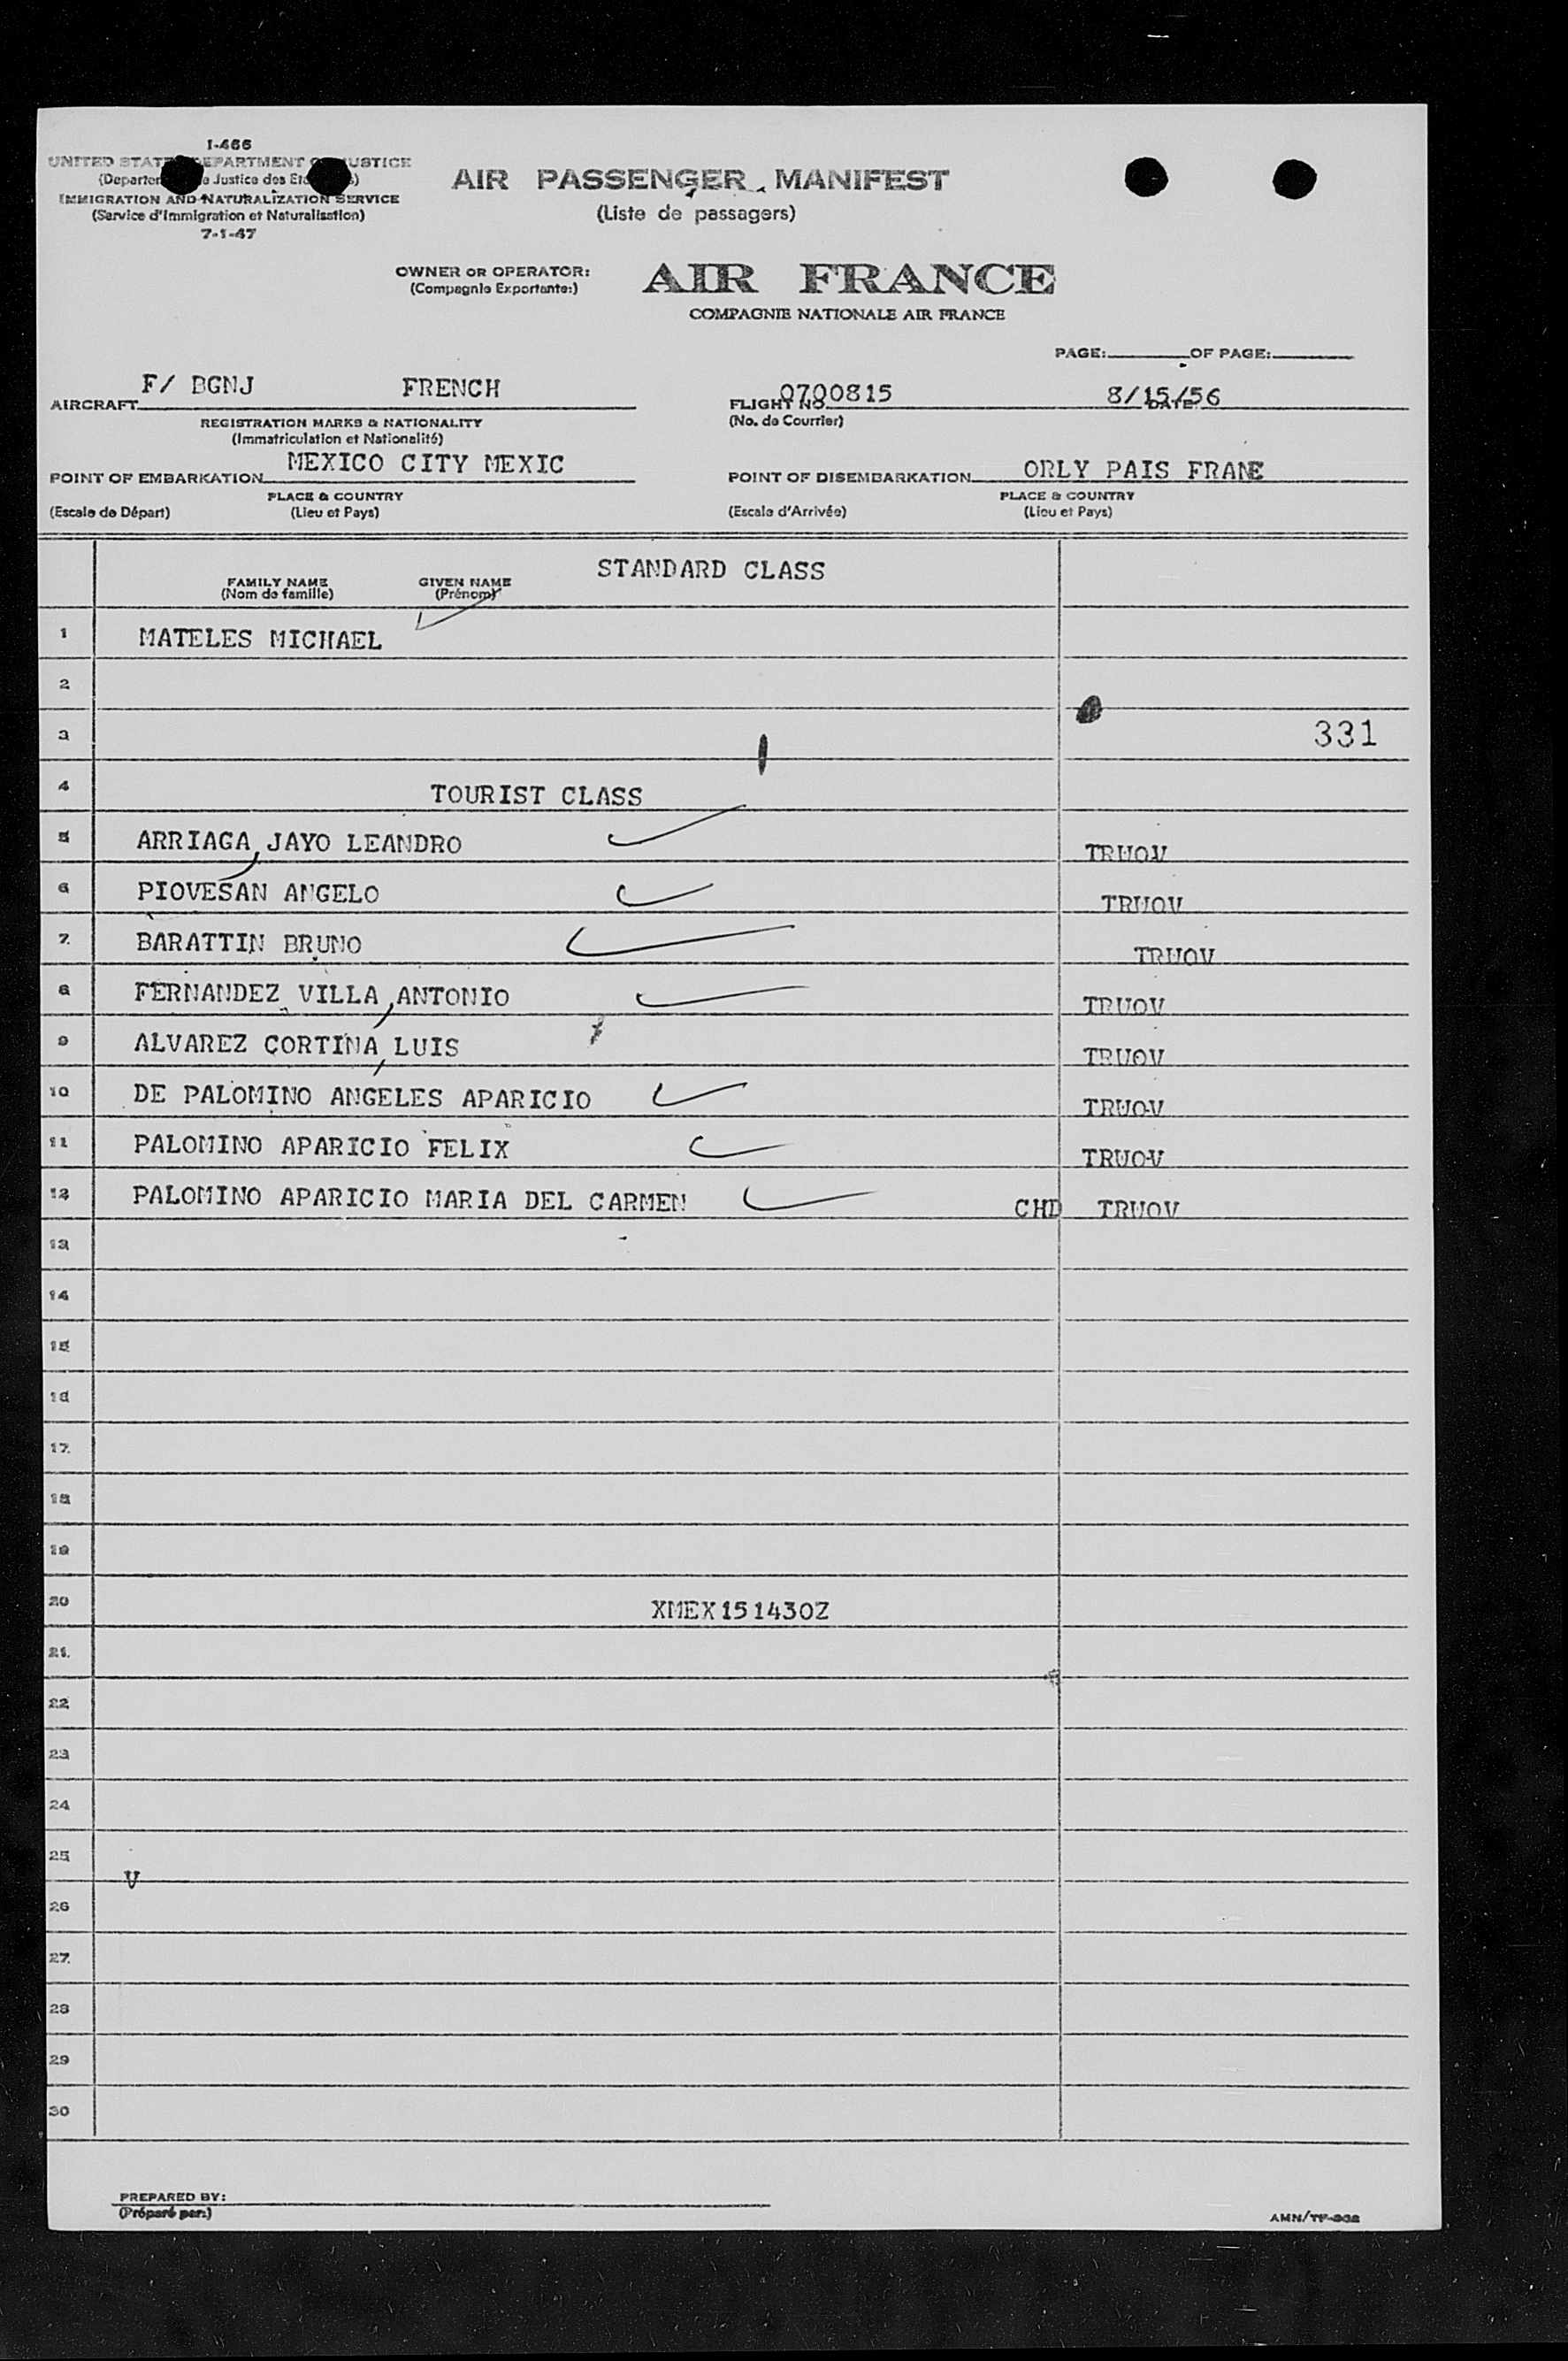 I-466
UNITED STATES DEPARTMENT OF JUSTICE
(Departem Justice des Eta s)
IMMIGRATION AND NATURALIZATION SERVICE
(Service d'Immigration et Naturalisation)
7-1-47
AIR PASSENGER MANIFEST
(Liste de passagers)
OWNER OR OPERATOR:
(Compagnie Exportante:)
AIR FRANCE
COMPAGNIE NATIONALE AIR FRANCE
PAGE: OF PAGE:
AIRCRAFT F/ BGNJ FRENCH
REGISTRATION MARKS & NATIONALITY
(Immatriculation et Nationalité)
FLIGHT NO. 0700815 DATE 8/15/56
(No. de Courrier)
POINT OF EMBARKATION MEXICO CITY MEXIC
PLACE & COUNTRY
(Escale de Départ) (Lieu et Pays)
POINT OF DISEMBARKATION ORLY PAIS FRANE
PLACE & COUNTRY
(Escale d'Arrivée) (Lieu et Pays)
FAMILY NAME GIVEN NAME STANDARD CLASS
(Nom de famille) (Prénom)
1 MATELES MICHAEL
2
3 331
4 TOURIST CLASS
5 ARRIAGA, JAYO LEANDRO TRUOV
6 PIOVESAN ANGELO TRUOV
7. BARATTIN BRUNO TRUOV
8 FERNANDEZ VILLA, ANTONIO TRUOV
9 ALVAREZ CORTINA, LUIS TRUOV
10 DE PALOMINO ANGELES APARICIO TRUOV
11 PALOMINO APARICIO FELIX TRUOV
12 PALOMINO APARICIO MARIA DEL CARMEN CHD TRUOV
13
14
15
16
17.
18
19
20 XMEX151430Z
21.
22
23
24
25 V
26
27.
28
29
30
PREPARED BY:
(Préparé par:)